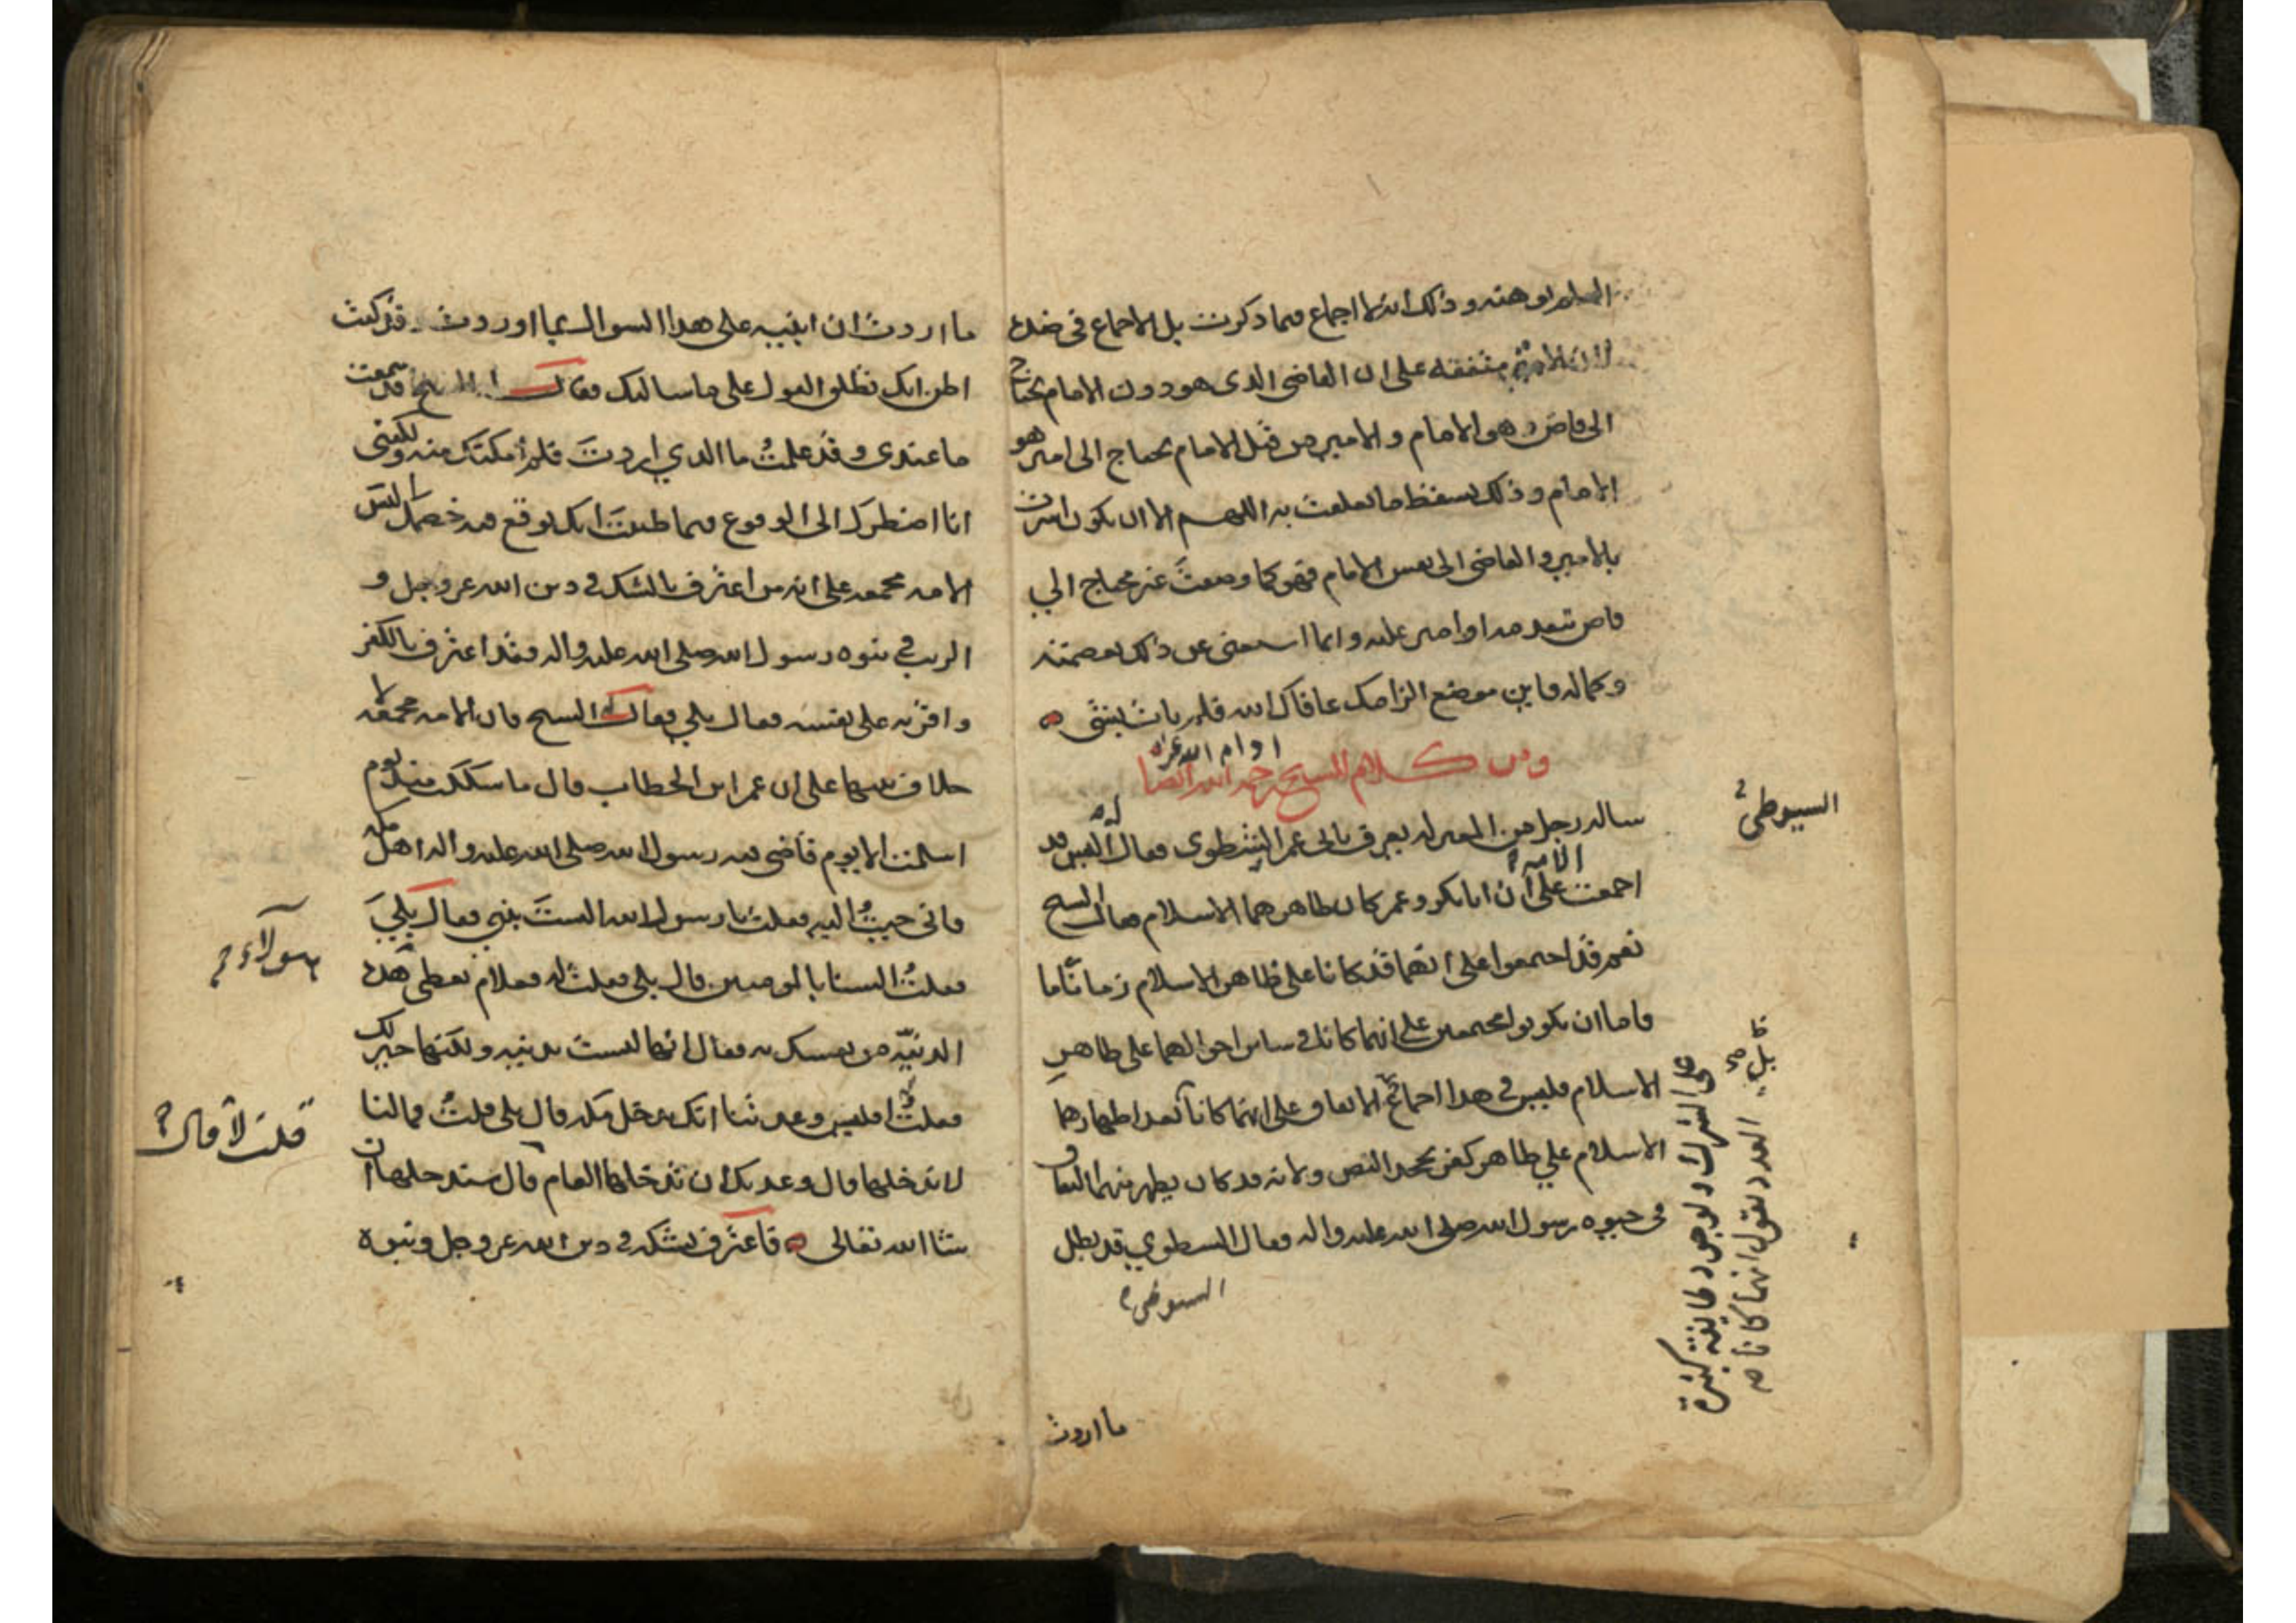 وذلك انه لا اجماع فيما ذكرت بل الاجماع في ضده
متفقه على ان القاضى الذى هو دون الامام يحتاج
الى قاض هو الامام و الامير من قبل الامام يحتاج الى امير هو
الامام و ذلك يسقط ما تعلقت به اللهم الا ان يكون اشرت
بالامير و القاضى الى نفس الامام فهو كما وصفت غير محتاج الي
قاض يتقدمه او امير عليه و انما استغنى عن ذلك بعصمته
و كماله فاين موضع الزامك عافاك الله فلم يات بشئ
ومن كلام الشيخ رحمه الله ايضا
ادام الله عزه
ساله رجل من المعتزله يعرف بابى عمر الشطوى فقال اليس قد
السيوطي
اجمعت الامه على ان ابابكر و عمر كان ظاهرهما الاسلام فقال له الشيخ
نعم قد اجمعوا على انهما قد كانا على ظاهر الاسلام زمانا
فاما ان يكونوا مجمعين على انهما كانا في ساير احوالهما على ظاهر
الاسلام فليس في هذا اجماع للاتفاق على انهما كانا
الاسلام علي ظاهر كفر بجحد النص و لانه قد كان يظهر منهما النفاق
فى حيوه رسول الله صلى الله عليه و اله فقال الشطوي قد بطل
على الشرك و لوجود طايفة كثيرة
العدد تقول انهما كانا
ما اردت
ما اردت ان ابنيه على هذا السوال بما اوردت و قد كنت
اظن انك تطلق القول على ما سالتك فقال الشيخ قد سمعت
ما عندى و قد علمت ما الذي اردت فلم امكنك منه و لكننى
انا اضطرك الى الوقوع فيما ظننت انك توقع فيه خصمك اليس
الامه مجمعه على انه من اعترف بالشك في دين الله عز و جل و
الريب في نبوه رسول الله صلى الله عليه و اله فقد اعترف بالكفر
و اقر به على نفسه فقال بلي فقال الشيخ فان الامه مجمعه لا
خلاف بينها على ان عمر ابن الخطاب قال ما شككت منذ يوم
اسلمت الا يوم قاضى فيه رسول الله صلى الله عليه و اله اهل مكه
فانى جيت اليه فقلت يا رسول الله الست بنبي فقال بلي
فقلت السنا بالمومنين قال بلى فقلت له فعلام تعطى هذه
الدنيه من نفسك فقال انها ليست بدنيه و لكنها خير لك
فقلت افليس وعدتنا انك تدخل مكه قال بلى قلت فما لنا
قلت لا قال
لا ندخلها قال وعدتك ان تدخلها العام قال سندخلها ان
شا الله تعالى فاعترف بشكه في دين الله عز و جل و نبوه